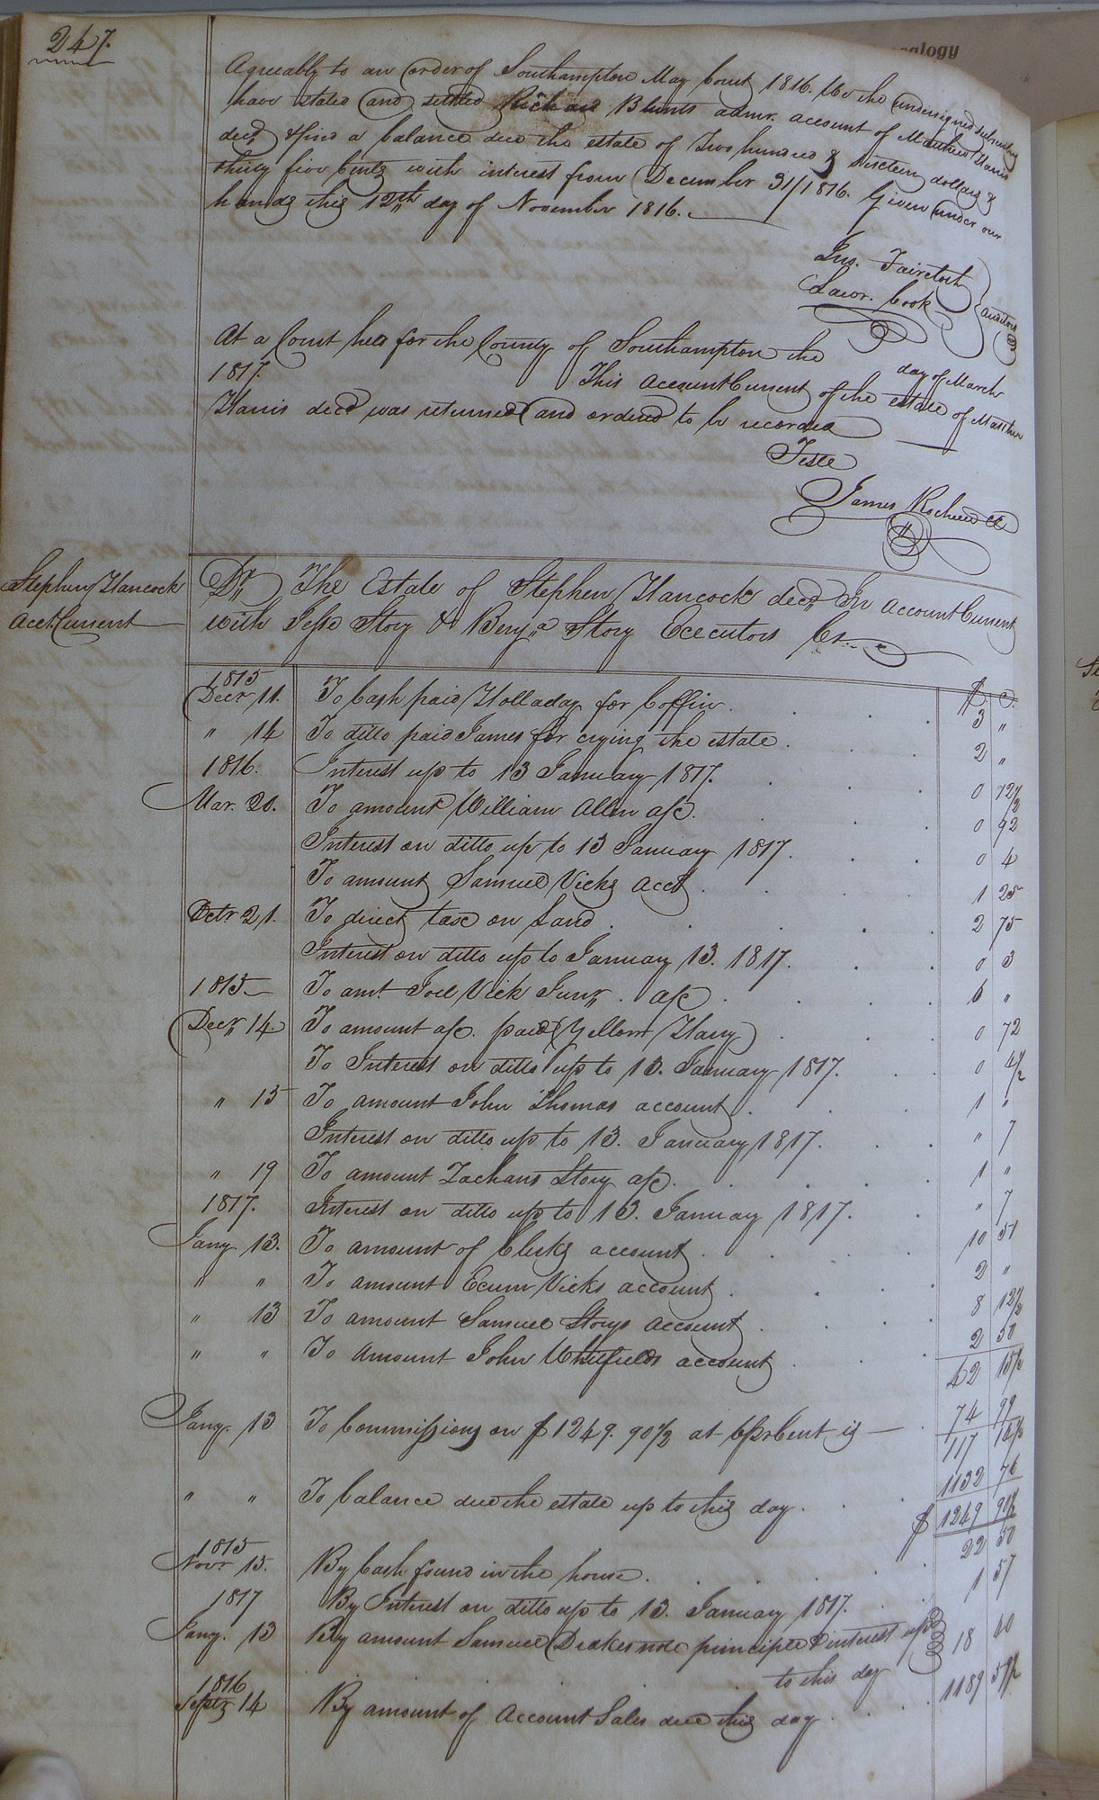 247.
alogy
Agreeably to an order of Southampton May Court 1816. We the undersigned
have stated and settled Richard Blunts admr. account of Matthew Harris
decd. & find a balance due the estate of Two hundred & nineteen dollars &
thirty five Cents with interest from December 31/1816. Given under our
hands this 12th day of November 1816.
Jno. Fairctoth
Lawr. Cook
auditors
At a Court held for the County of Southampton the day of March
1817. This Account Current of the estate of Matthew
Harris decd was returned and ordered to be recorded
Teste
James Rochelle Cl
Stephen Hancock
Acct Current
Dr. The Estate of Stephen Hancock decd. In Account Current
with Jesse Story & Benja. Story Executors Cr.
$ C.
1815
Decr 11. To Cash paid Holladay for Coffin . 3 "
" 14 To ditto paid James for crying the estate . 2 "
1816. Interest up to 13 January 1817. 0 12 1/2
Mar. 20. To amount William Allen a/c. 0 92
Interest on ditto up to 13 January 1817. 0 4
To amount Samuel Vicks Acct . 1 25
Octr 21. To direct tax on Land . 2 75
Interest on ditto up to January 13. 1817. 0 3
1815 To amt. Joel Vick Junr. a/c . 6 "
Decr 14 To amount a/c. paid Yellow Harry 0 72
To Interest on ditto up to 13. January 1817. 0 4 1/2
" 15 To amount John Thomas account . 1 "
Interest on ditto up to 13. January 1817. " 7
" 19 To amount Zachans Story a/c. 1 "
1817. Interest on ditto up to 13. January 1817. " 7
Jany 13. To amount of Clerks account . 10 51
" " To amount Exum Vicks account . 2 "
" 13 To amount Samuel Storys Account . 8 12 1/2
" " To Amount John Whitfields account 2 50
42 15 1/2
Jany. 13 To Commissions on $1249. 90 1/2 at 6 pr Cent is — 74 99
117 14 1/2
" " To balance due the estate up to this day . 1132 76
$ 1249 90 1/2
1815
Novr. 15. By Cash found in the house . 22 50
1817 By Interest on ditto up to 13. January 1817. 1 57
Jany. 13 By amount Samuel Drakes note principle & interest up
to this day 18 60
1816
Septr 14 By amount of Account Sales due this day . 1189 59 1/2